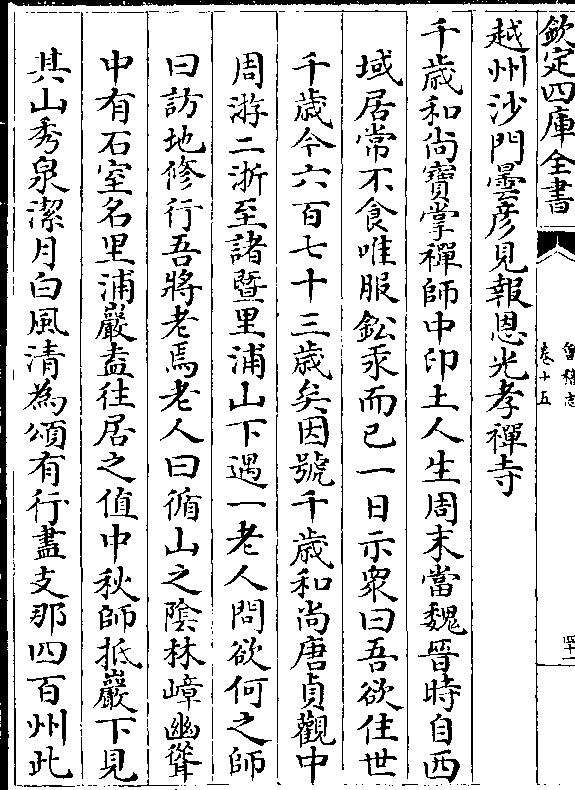 欽定四庫全書
會稽志
卷十五
四十一
越州沙門曇彦見報恩光孝禪寺
千歲和尚寶掌禪師中印土人生周末當魏晉時自西
域居常不食唯服鈆汞而已一日示衆曰吾欲住世
千歲今六百七十三歲矣因號千歲和尚唐貞觀中
周游二浙至諸暨里浦山下遇一老人問欲何之師
曰訪地修行吾將老焉老人曰循山之陰林嶂幽聳
中有石室名里浦巖盍往居之值中秋師抵巖下見
其山秀泉潔月白風清為頌有行盡支那四百州此